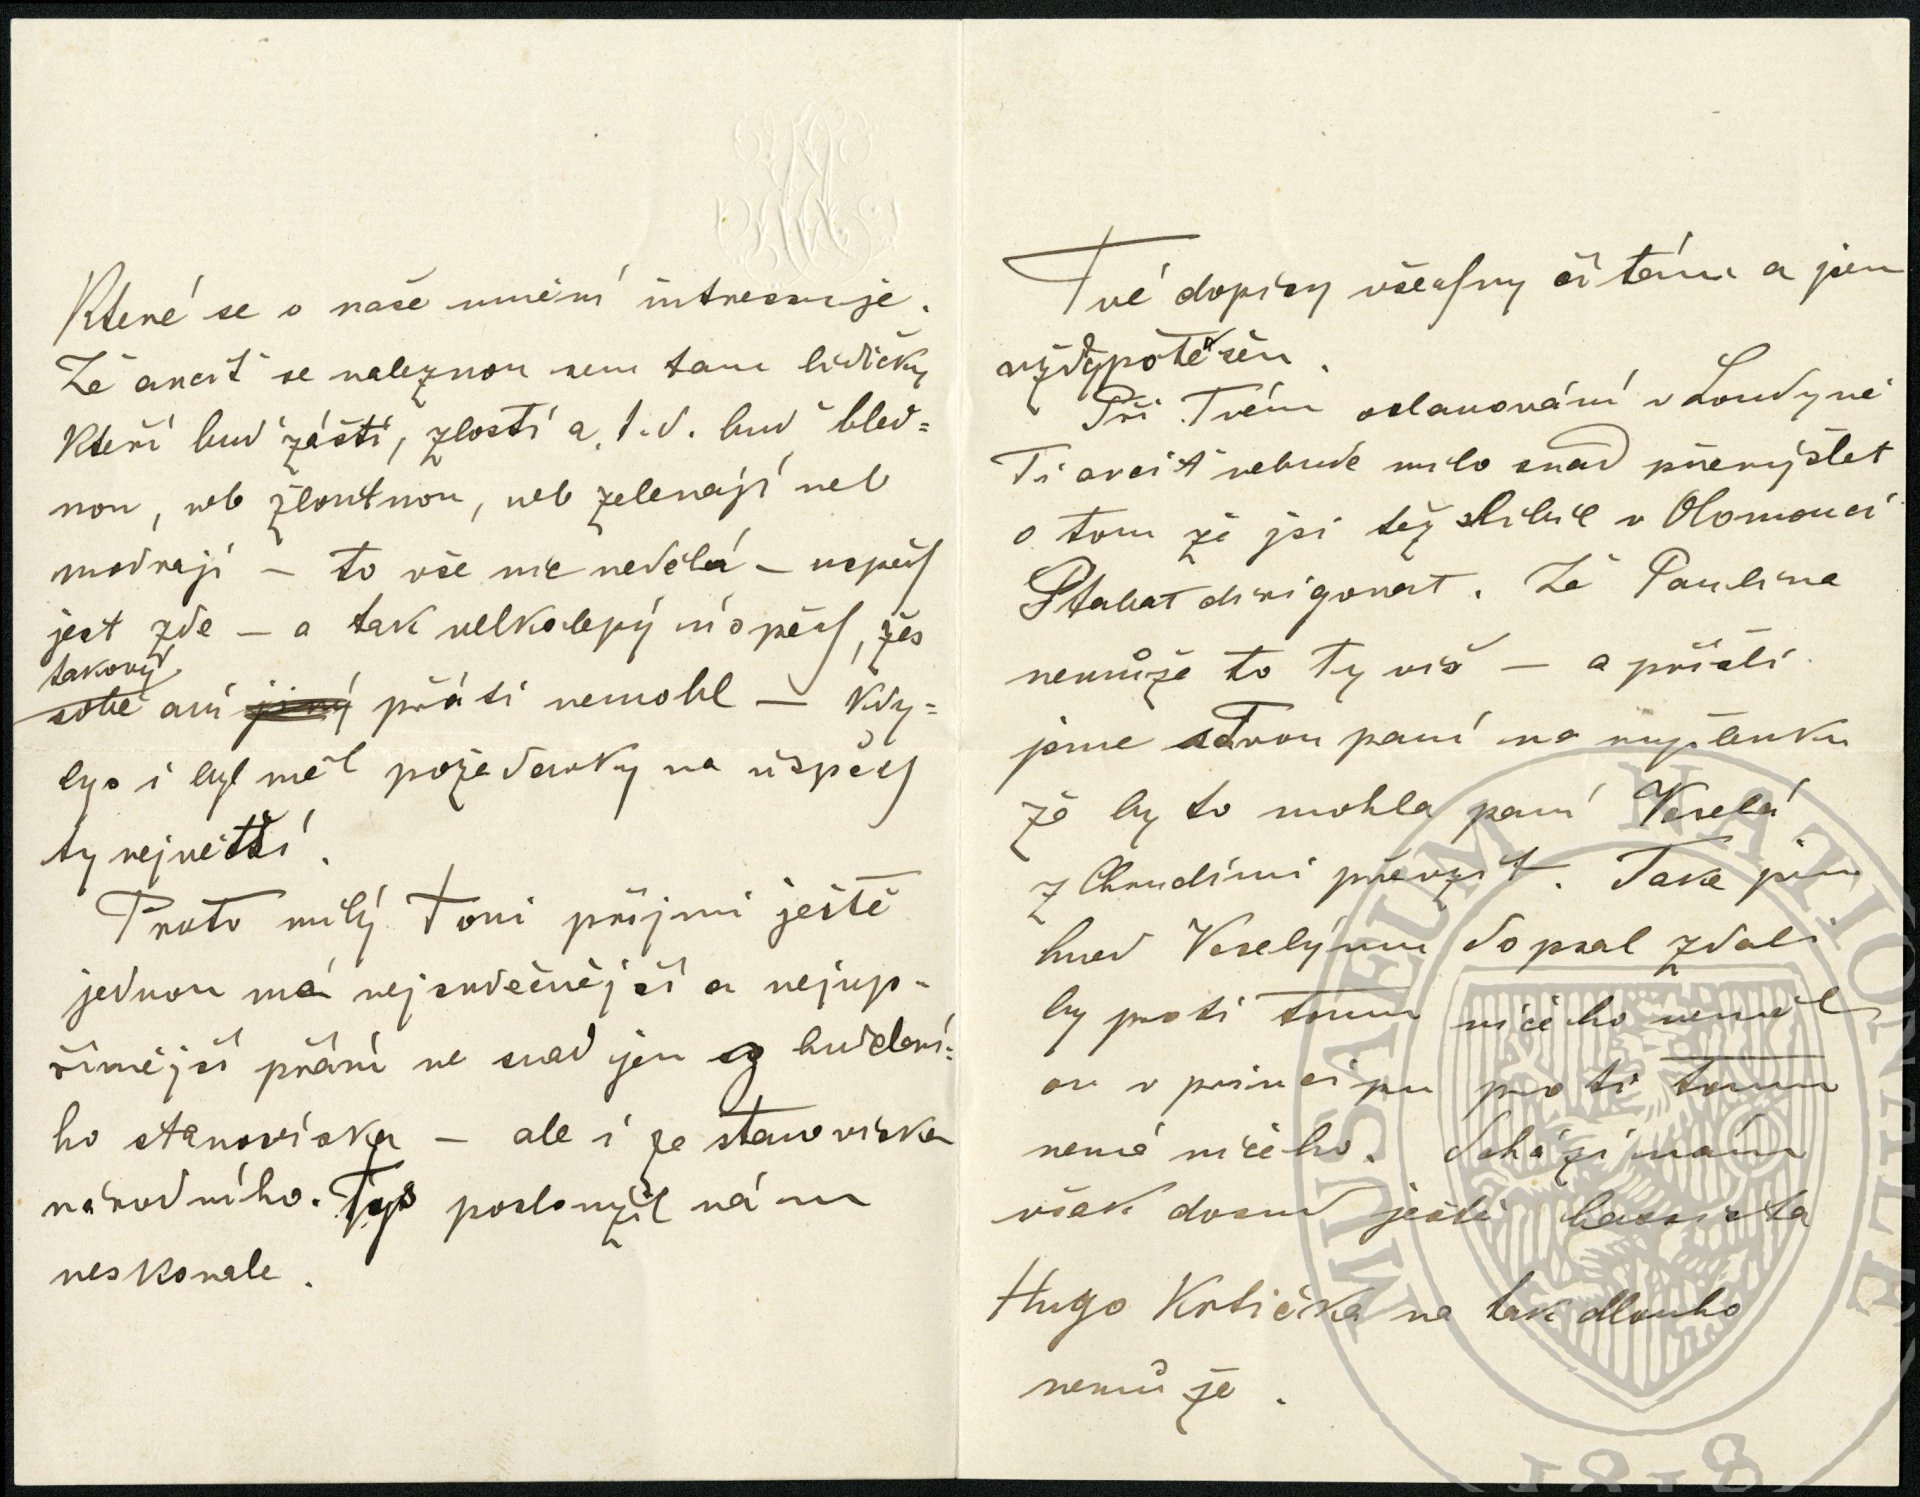 které se o naše umění intressuje.
Že arcit se naleznou sem tam lidičky
kteří buď záští, zlostí a t.d. buď bled=
nou, neb žloutnou, neb zelenají neb
modrají – to vše nic nedělá – uspěch
jest zde – a tak velkolepý úspěch, žes
takový
sobě ani jiný přáti nemohl – kdy=
bys i byl měl požadavky na úspěch
ty největší.
Proto milý Toni přijmi ještě
jednou má nejsrdečnější a nejup-
římější přání ne snad jen z hudební=
ho stanoviska – ale i ze stanoviska
národního. Tys posloužil nám
neskonale.
Tvé dopisy všechny čítám a jsem
vždy potěšen.
Při Tvém oslavování v Londyně
Ti arcit nebude milo snad přemýšlet
o tom že jsi též slíbil v Olomouci
Stabat dirigovat. Že Paulina
nemůže to Ty víš – a přišli
jsme s Tvou paní na myšlenku
že by to mohla paní Veselá
z Chrudimi převzít. Také jsem
hned Veselýmu dopsal zdali
by proti tomu ničeho neměl
on v principu proti tomu
nemá ničeho. Schází nám
však dosud ještě bassista
Hugo Krtička na tak dlouho
nemůže.
MUSAEUM NATIONALE
1818